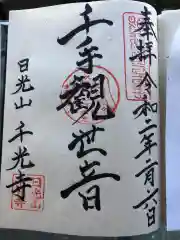 奉拝 令和二年二月六日
千手観世音
日光山 千光寺